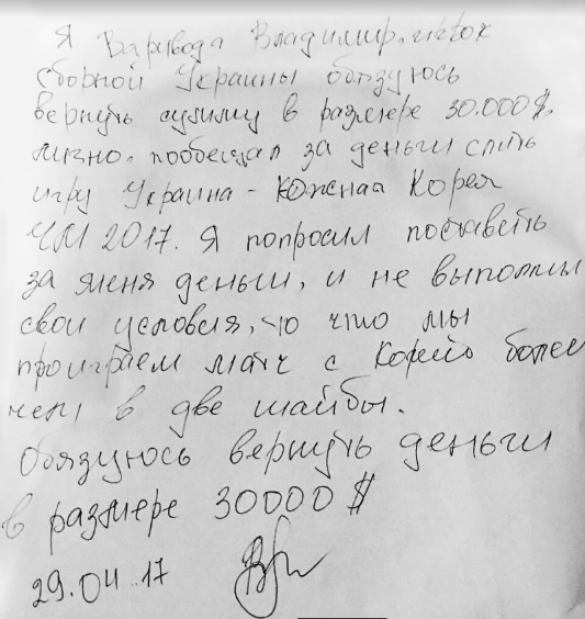 Я Варивода Владимир, игрок
сборной Украины обязуюсь
вернуть сумму в размере 30.000 $,
лично. пообещал за деньги слить
игру Украина - Южная Корея
ЧМ 2017. Я попросил поставить
за меня деньги, и не выполнил
свои условия, что мы
проиграем матч с Кореей более
чем в две шайбы.
Обязуюсь вернуть деньги
в размере 30000 $
29.04.17